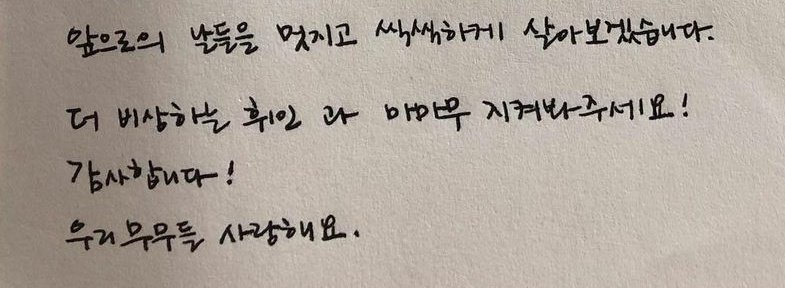 앞으로의 날들을 멋지고 씩씩하게 살아보겠습니다.
더 비상하는 휘인 과 마마무 지켜봐주세요!
감사합니다!
우리 무무들 사랑해요.